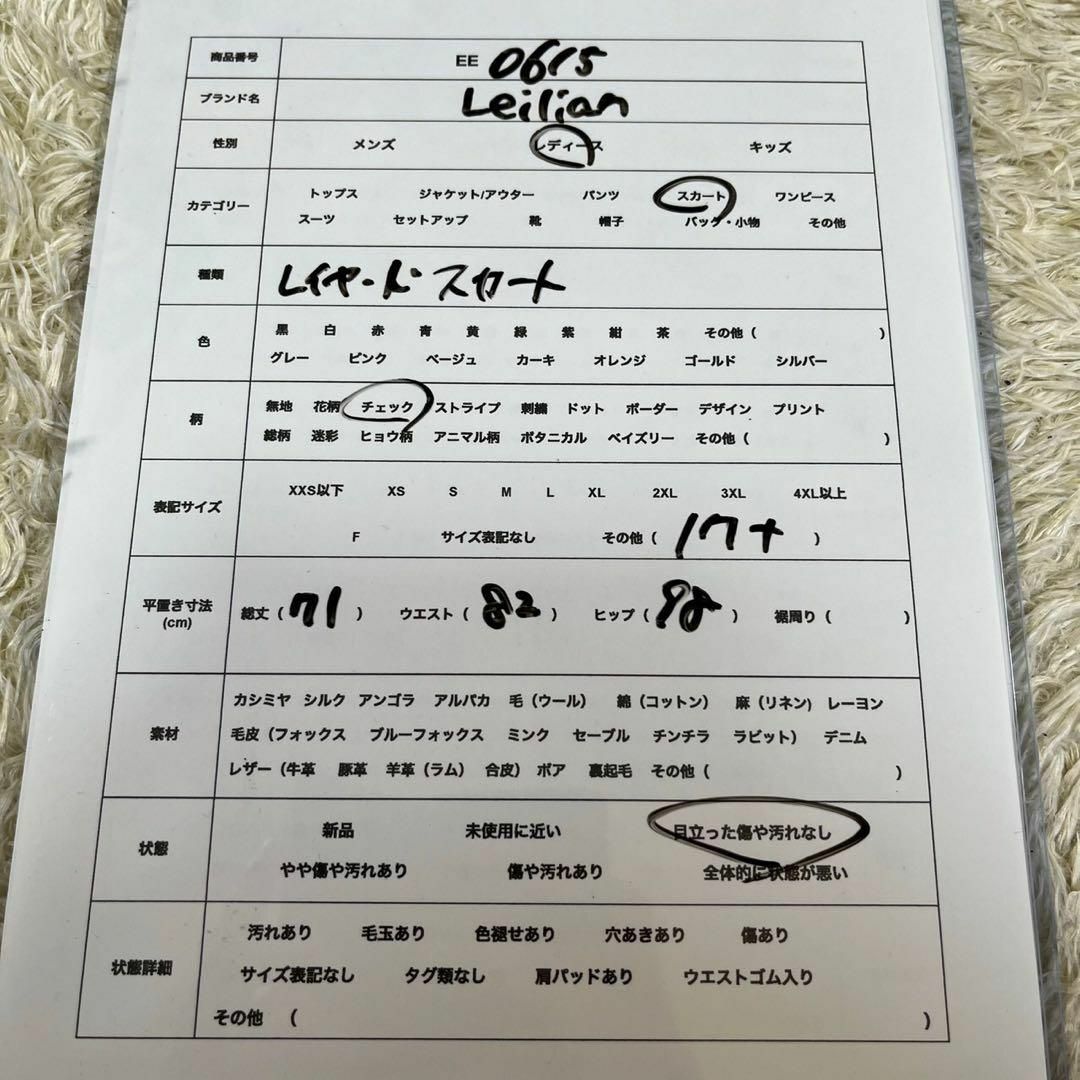 商品番号 EE 0615
ブランド名 Leilian
性別 メンズ レディース キッズ
カテゴリー
トップス ジャケット/アウター パンツ スカート ワンピース
スーツ セットアップ 靴 帽子 バッグ・小物 その他
種類 レイヤードスカート
色
黒 白 赤 青 黄 緑 紫 紺 茶 その他 ( )
グレー ピンク ベージュ カーキ オレンジ ゴールド シルバー
柄
無地 花柄 チェック ストライプ 刺繍 ドット ボーダー デザイン プリント
総柄 迷彩 ヒョウ柄 アニマル柄 ボタニカル ペイズリー その他 ( )
表記サイズ
XXS以下 XS S M L XL 2XL 3XL 4XL以上
F サイズ表記なし その他 ( 17+ )
平置き寸法
(cm)
総丈 ( 71 ) ウエスト ( 82 ) ヒップ ( 98 ) 裾周り ( )
素材
カシミヤ シルク アンゴラ アルパカ 毛（ウール） 綿（コットン） 麻（リネン) レーヨン
毛皮（フォックス ブルーフォックス ミンク セーブル チンチラ ラビット） デニム
レザー（牛革 豚革 羊革（ラム） 合皮） ボア 裏起毛 その他 ( )
状態
新品 未使用に近い 目立った傷や汚れなし
やや傷や汚れあり 傷や汚れあり 全体的に状態が悪い
状態詳細
汚れあり 毛玉あり 色褪せあり 穴あきあり 傷あり
サイズ表記なし タグ類なし 肩パッドあり ウエストゴム入り
その他 ( )